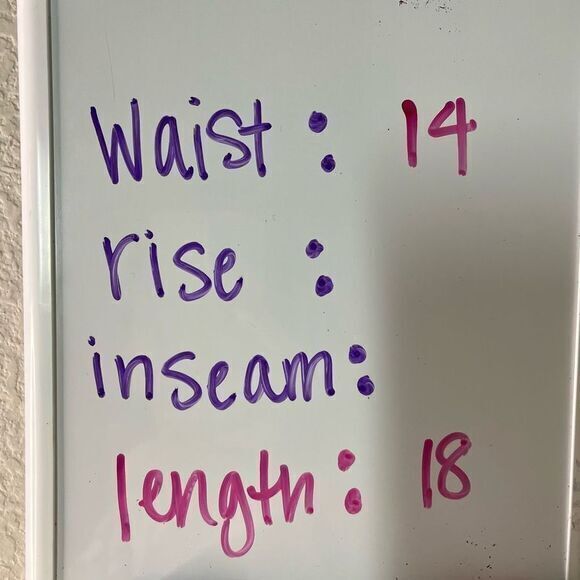 Waist : 14
rise :
inseam:
length: 18